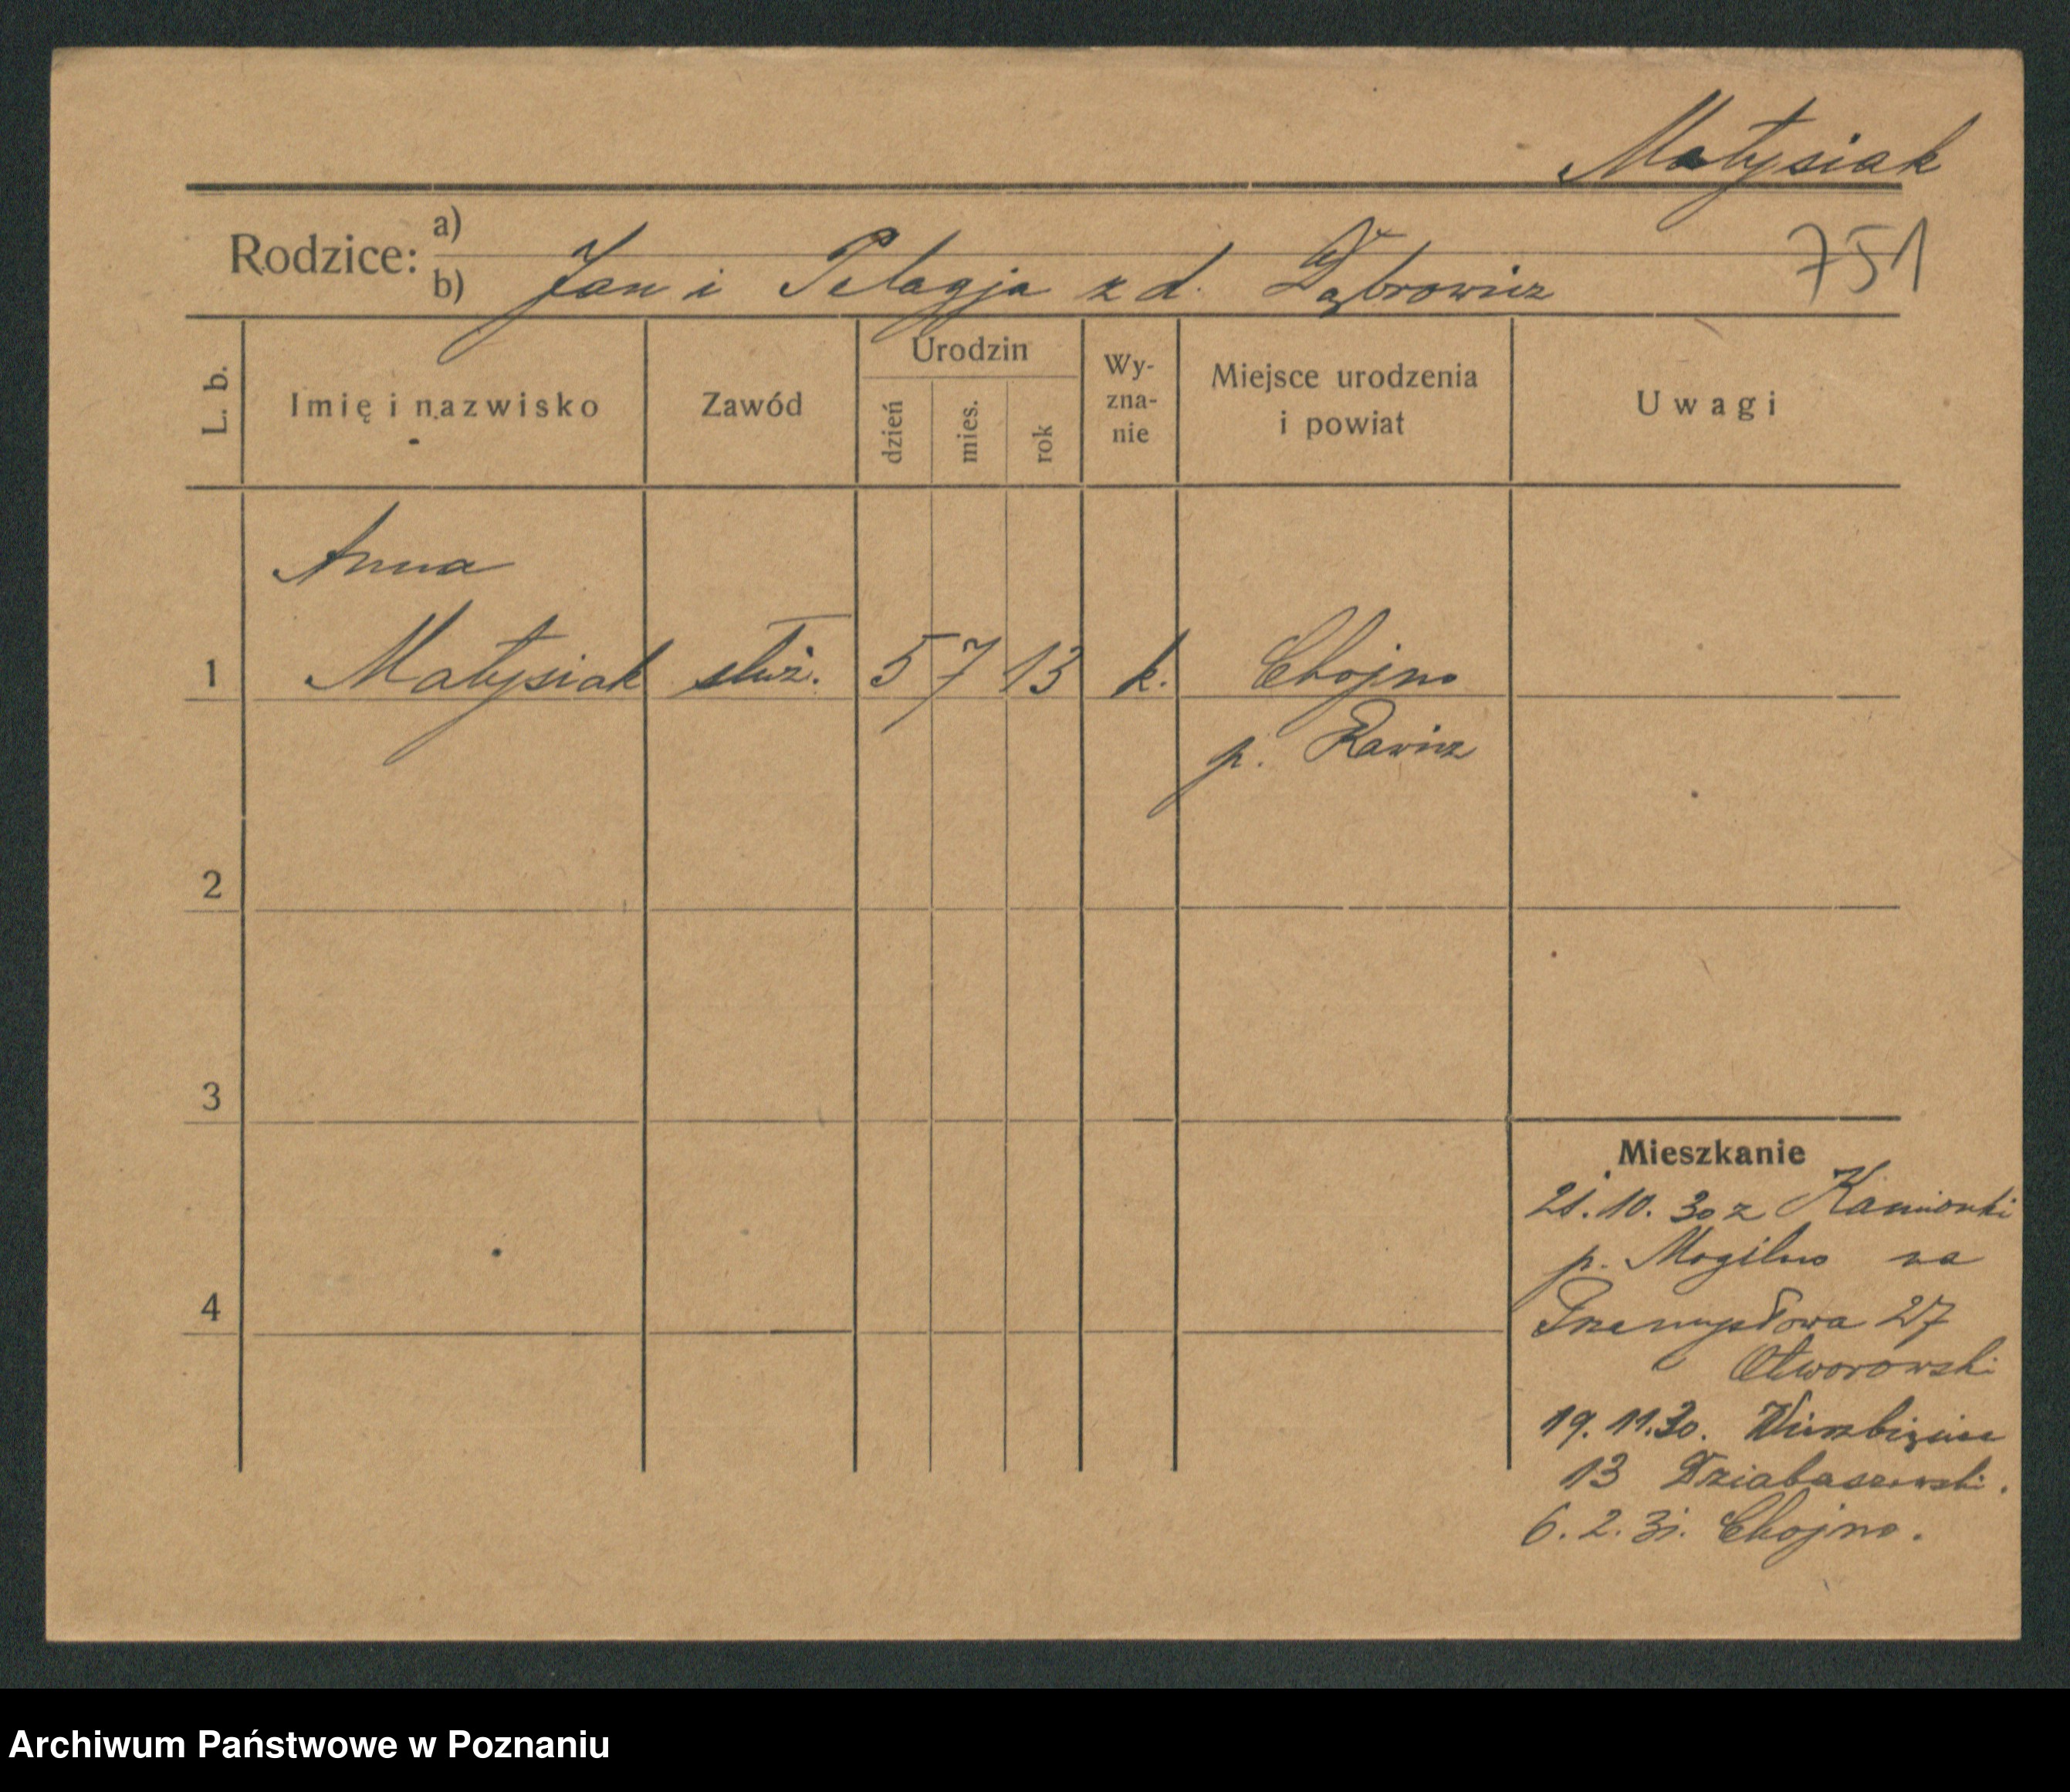 Matysiak
Rodzice: a)
b) Jan i Pelagja z d. Dąbrowicz
751
L. b.
Imię i nazwisko
Zawód
Urodzin
dzień
mies.
rok
Wy-
zna-
nie
Miejsce urodzenia
i powiat
Uwagi
Anna
1 Matysiak służ. 5 7 13 k. Chojno
p. Rawicz
2
3
4
Mieszkanie
21. 10. 30 z Kamionki
p. Mogilno na
Przemysłowa 27
Otworowski
19. 11. 30. Wierzbięcice
13 Dziabaszewski.
6. 2. 31. Chojno.
Archiwum Państwowe w Poznaniu